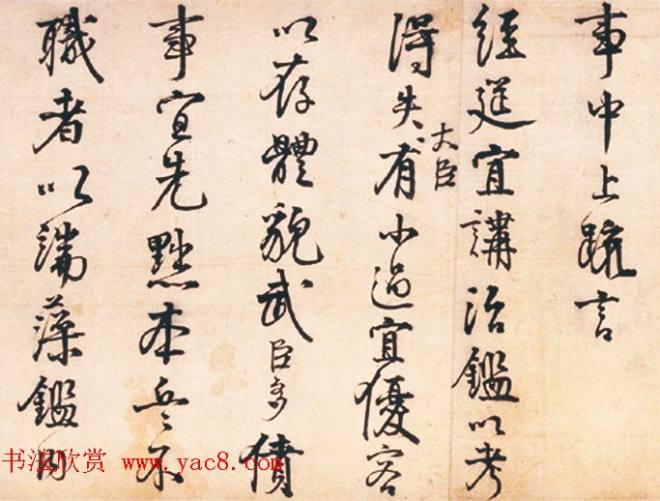 事中上疏言
經筵宜講治鑑以考
得失大臣有小過宜優容
以存體貌武臣多債
事宜先黜本兵不
職者以端藻鑑又
书法欣赏 www.yac8.com